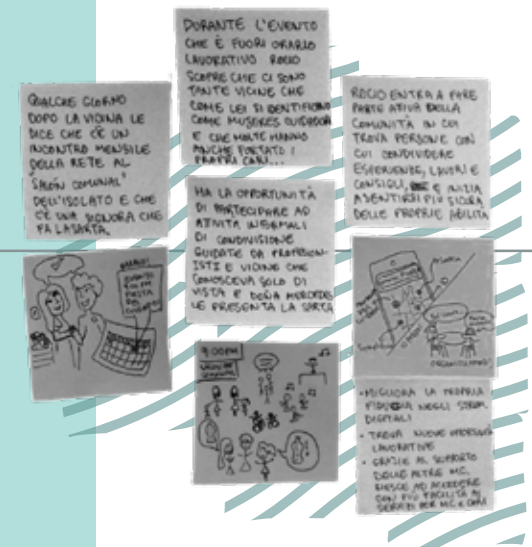 QUALCHE GIORNO
DOPO LA VICINA LE
DICE CHE C'È UN
INCONTRO MENSILE
DELLA RETE AL
"SALÓN COMUNAL"
DELL'ISOLATO E CHE
C'È UNA SIGNORA CHE
FA LA SARTA.
DURANTE L'EVENTO
CHE È FUORI ORARIO
LAVORATIVO ROCIO
SCOPRE CHE CI SONO
TANTE VICINE CHE
COME LEI SI IDENTIFICANO
COME MUJERES CUIDADORA
E CHE MOLTE HANNO
ANCHE PORTATO I
PROPRI CARI...
HA LA OPPORTUNITÀ
DI PARTECIPARE AD
ATIVITÀ INFORMALI
DI CONDIVISIONE
GUIDATE DA PROFESION-
ISTI E VICINE CHE
CONOSCEVA SOLO DI
VISTA E DOÑA MERCEDES
LE PRESENTA LA SARTA
9:00PM
ROCIO ENTRA A FARE
PARTE ATIVA DELLA
COMUNITÀ IN CUI
TROVA PERSONE CON
CUI CONDIVIDERE
ESPERIENZE, LAVORI E
CONSIGLI, E INIZIA
A SENTIRSI PIÙ SICURA
DELLE PROPRIE ABILITÀ
• MIGLIORA LA PROPRIA
FIDUCIA NEGLI STRUM.
DIGITALI
• TROVA NUOVE OPPORTUNITÀ
LAVORATIVE
• GRAZIE AL SUPPORTO
DELLE ALTRE MC,
RIESCE AD ACCEDERE
CON PIÙ FACILITÀ AI
SERVIZI PER MC E